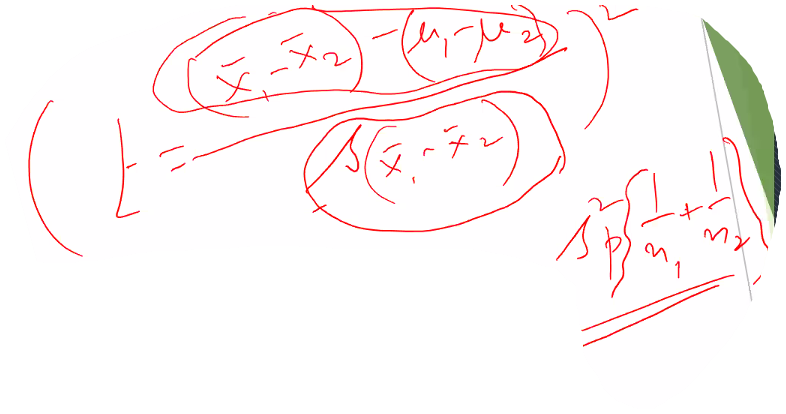 (t = ((x̄₁ - x̄₂) - (μ₁ - μ₂)) / s(x̄₁ - x̄₂))²
s²p{1/n₁ + 1/n₂}